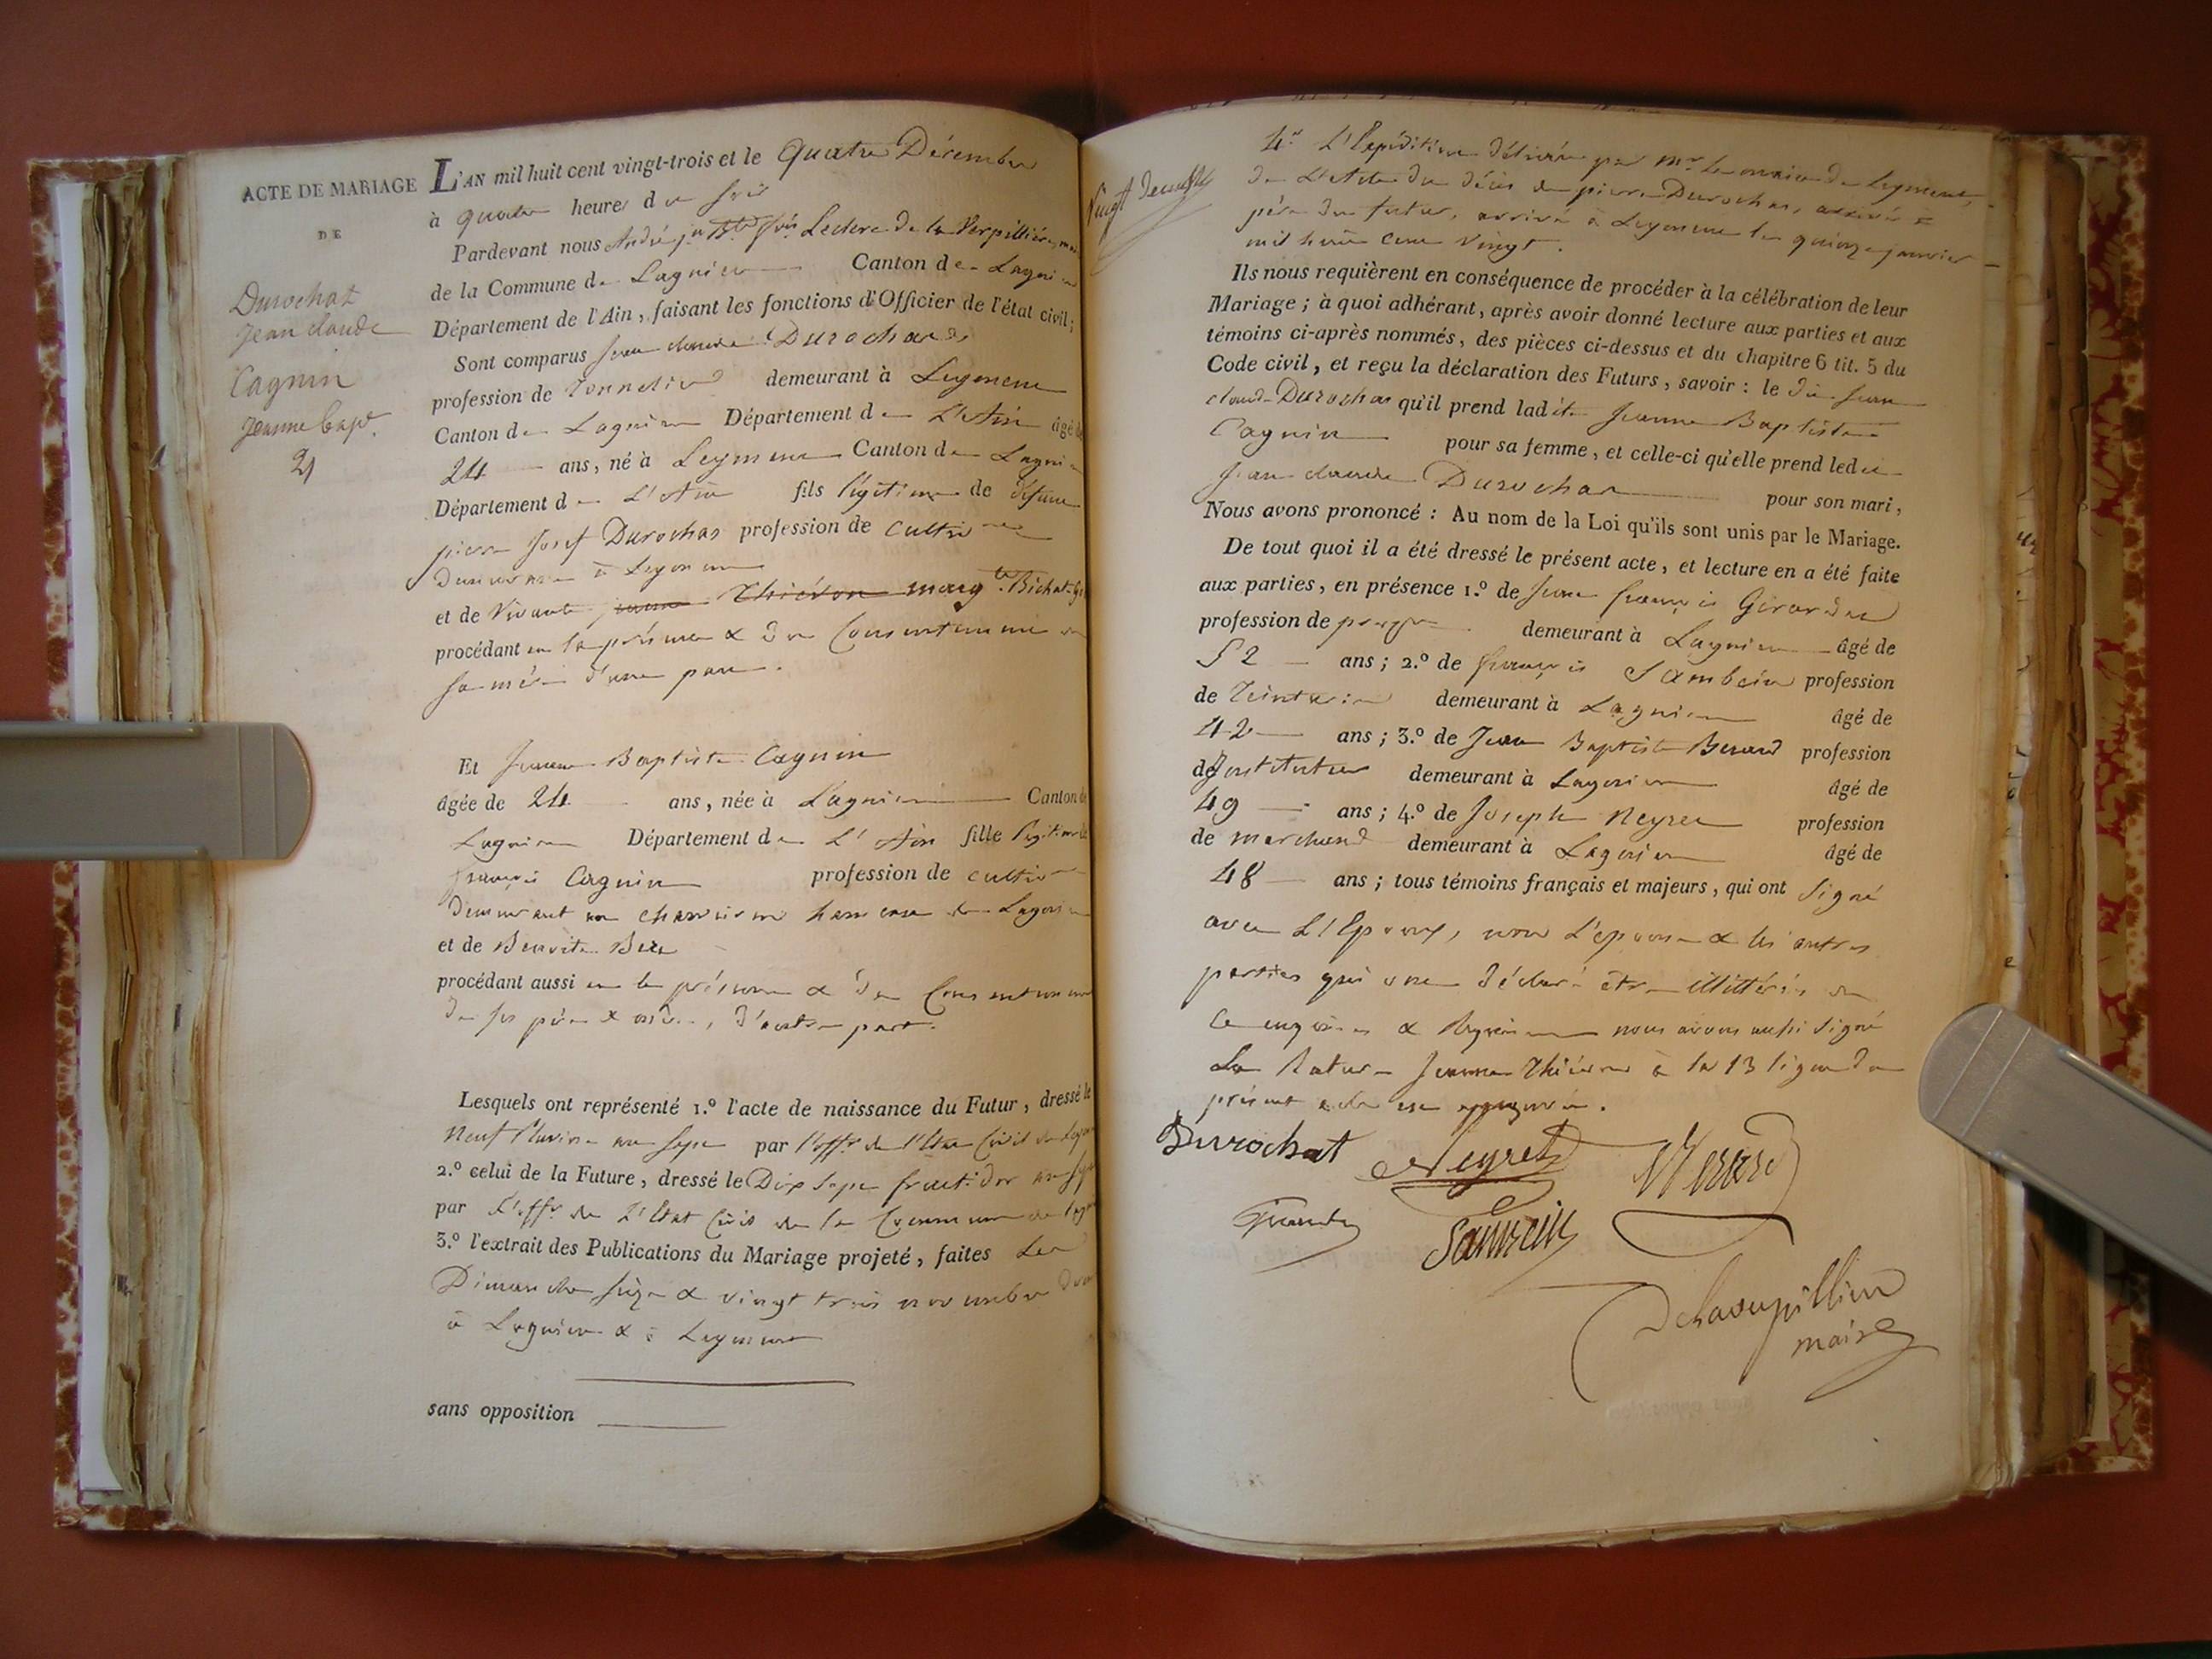 ACTE DE MARIAGE
DE
Durochat
Jean claude
Cagnin
Jeanne Bapt.
21
L'AN mil huit cent vingt-trois et le quatre Décembre
à quatre heures du soir
Pardevant nous André Leclerc De la Verpillière, maire
de la Commune de Lagnieu Canton de Lagnieu
Département de l'Ain, faisant les fonctions d'Officier de l'état civil;
Sont comparus Jean claude Durochat
profession de Tonnelier demeurant à Leyment
Canton de Lagnieu Département de L'Ain âgé de
24 ans, né à Leyment Canton de Lagnieu
Département de L'Ain fils légitime de défunt
pierre Josef Durochat profession de cultivateur
Demeurant à Leyment
et de Vivante Jeanne Thiévon marg.te Bichat
procédant en la présence & du Consentement de
sa mère d'une part.
Et Jeanne Baptiste Cagnin
âgée de 24 ans, née à Lagnieu Canton de
Lagnieu Département de L'Ain fille légitime de
françois Cagnin profession de cultivateur
Demeurant en hameau de Lagnieu
et de Benoite
procédant aussi en la présence & du Consentement
de ses père & mère, d'autre part.
Lesquels ont représenté 1.º l'acte de naissance du Futur, dressé le
Neuf Pluviose an sept par l'offr. de l'Etat Civil de Leyment
2.º celui de la Future, dressé le Dix sept fructidor an sept
par L'offr. de L'Etat Civil de la Commune de Lagnieu
3.º l'extrait des Publications du Mariage projeté, faites les
Dimanches seize & vingt trois novembre
à Lagnieu & à Leyment
sans opposition
4.º L'Expédition délivrée par Mr. le maire de Leyment,
De L'Acte du décès de pierre Durochat, arrivé
père du futur, arrivé à Leyment le quinze janvier
mil huit cent vingt.
Ils nous requièrent en conséquence de procéder à la célébration de leur
Mariage; à quoi adhérant, après avoir donné lecture aux parties et aux
témoins ci-après nommés, des pièces ci-dessus et du chapitre 6 tit. 5 du
Code civil, et reçu la déclaration des Futurs, savoir: le dit Jean
claude Durochat qu'il prend ladite Jeanne Baptiste
Cagnin pour sa femme, et celle-ci qu'elle prend ledit
Jean claude Durochat pour son mari,
Nous avons prononcé: Au nom de la Loi qu'ils sont unis par le Mariage.
De tout quoi il a été dressé le présent acte, et lecture en a été faite
aux parties, en présence 1.º de Jean françois
profession de demeurant à Lagnieu âgé de
52 ans; 2.º de françois profession
de Teinturier demeurant à Lagnieu âgé de
42 ans; 3.º de Jean Baptiste profession
d'Instituteur demeurant à Lagnieu âgé de
49 ans; 4.º de Joseph Neyret profession
de marchand demeurant à Lagnieu âgé de
48 ans; tous témoins français et majeurs, qui ont signé
avec L'Epoux, non L'epouse & les autres
parties qui ont déclaré être illittérés de
ce enquises & requises nous avons aussi signé
La Rature Jeanne Thiévon à la 13 ligne du
présent acte est approuvée.
Durochat Neyret
Delaverpillière
maire